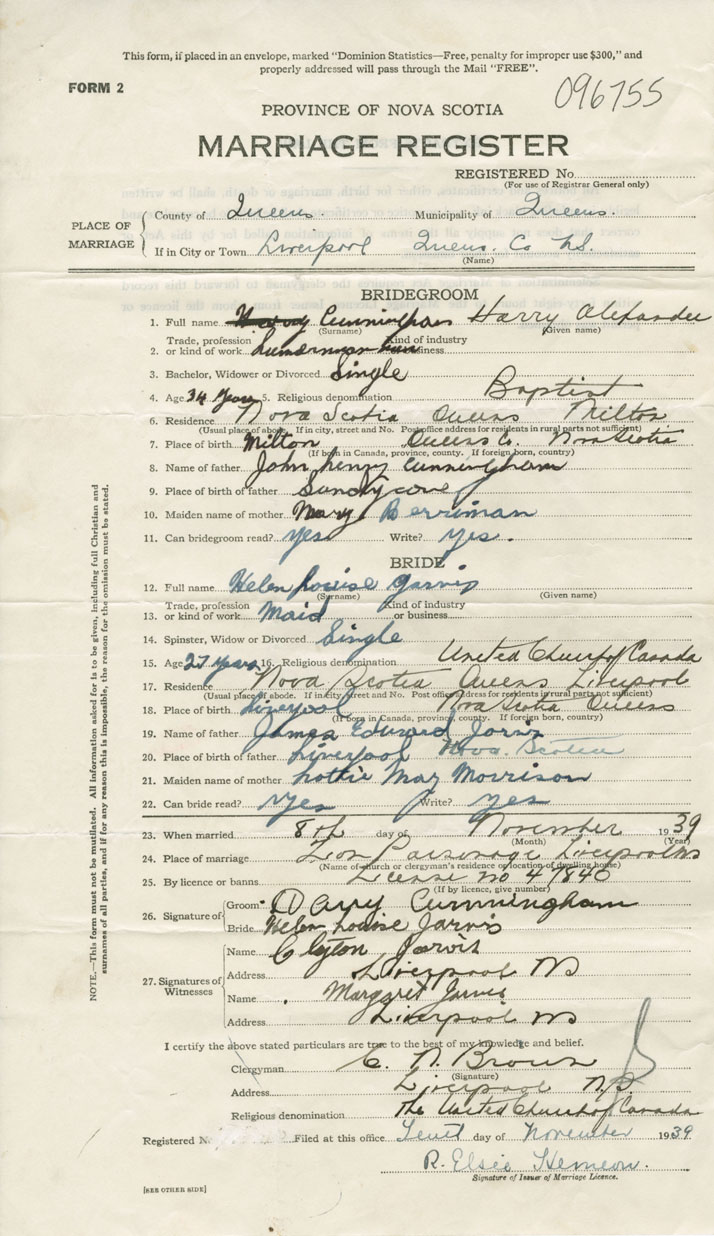 This form, if placed in an envelope, marked "Dominion Statistics—Free, penalty for improper use $300," and
properly addressed will pass through the Mail "FREE".
FORM 2
096755
PROVINCE OF NOVA SCOTIA
MARRIAGE REGISTER
REGISTERED No.
(For use of Registrar General only)
PLACE OF MARRIAGE
County of Queens. Municipality of Queens.
If in City or Town Liverpool Queens. Co N.S.
(Name)
BRIDEGROOM
1. Full name Cunningham Harry Alexander
(Surname) (Given name)
Trade, profession Kind of industry
2. or kind of work Lumberman or business
3. Bachelor, Widower or Divorced Single
4. Age 34 Years 5. Religious denomination Baptist
6. Residence Nova Scotia Queens Milton
(Usual place of abode. If in city, street and No. Post office address for residents in rural parts not sufficient)
7. Place of birth Milton Queens Co. Nova Scotia
(If born in Canada, province, county. If foreign born, country)
8. Name of father John henry Cunningham
9. Place of birth of father Sandy cove
10. Maiden name of mother Mary Berriman
11. Can bridegroom read? yes Write? yes.
BRIDE
12. Full name Helen Louise Jarvis
(Surname) (Given name)
Trade, profession Kind of industry
13. or kind of work Maid or business
14. Spinster, Widow or Divorced Single
15. Age 27 years 16. Religious denomination United Church of Canada
17. Residence Nova Scotia Queens Liverpool
(Usual place of abode. If in city, street and No. Post office address for residents in rural parts not sufficient)
18. Place of birth Liverpool Nova Scotia Queens
(If born in Canada, province, county. If foreign born, country)
19. Name of father James Edward Jarvis
20. Place of birth of father Liverpool Nova. Scotia
21. Maiden name of mother Lottie May Morrison
22. Can bride read? Yes Write? Yes
23. When married 8th day of November 1939
(Month) (Year)
24. Place of marriage Zion Parsonage Liverpool NS
(Name of church or clergyman's residence or location of dwelling house)
25. By licence or banns License no 47840
(If by licence, give number)
26. Signature of
Groom Harry Cunningham
Bride Helen Louise Jarvis
27. Signatures of Witnesses
Name Clyton Jarvis
Address Liverpool NS
Name Margaret Jarvis
Address Liverpool NS
I certify the above stated particulars are true to the best of my knowledge and belief.
Clergyman C. N. Brown
(Signature)
Address Liverpool N.S.
Religious denomination The United Church of Canada
Registered N Filed at this office day of November 1939
R. Elsie Hemeon.
Signature of Issuer of Marriage Licence.
[SEE OTHER SIDE]
NOTE.—This form must not be mutilated. All information asked for is to be given, including full Christian and
surnames of all parties, and if for any reason this is impossible, the reason for the omission must be stated.